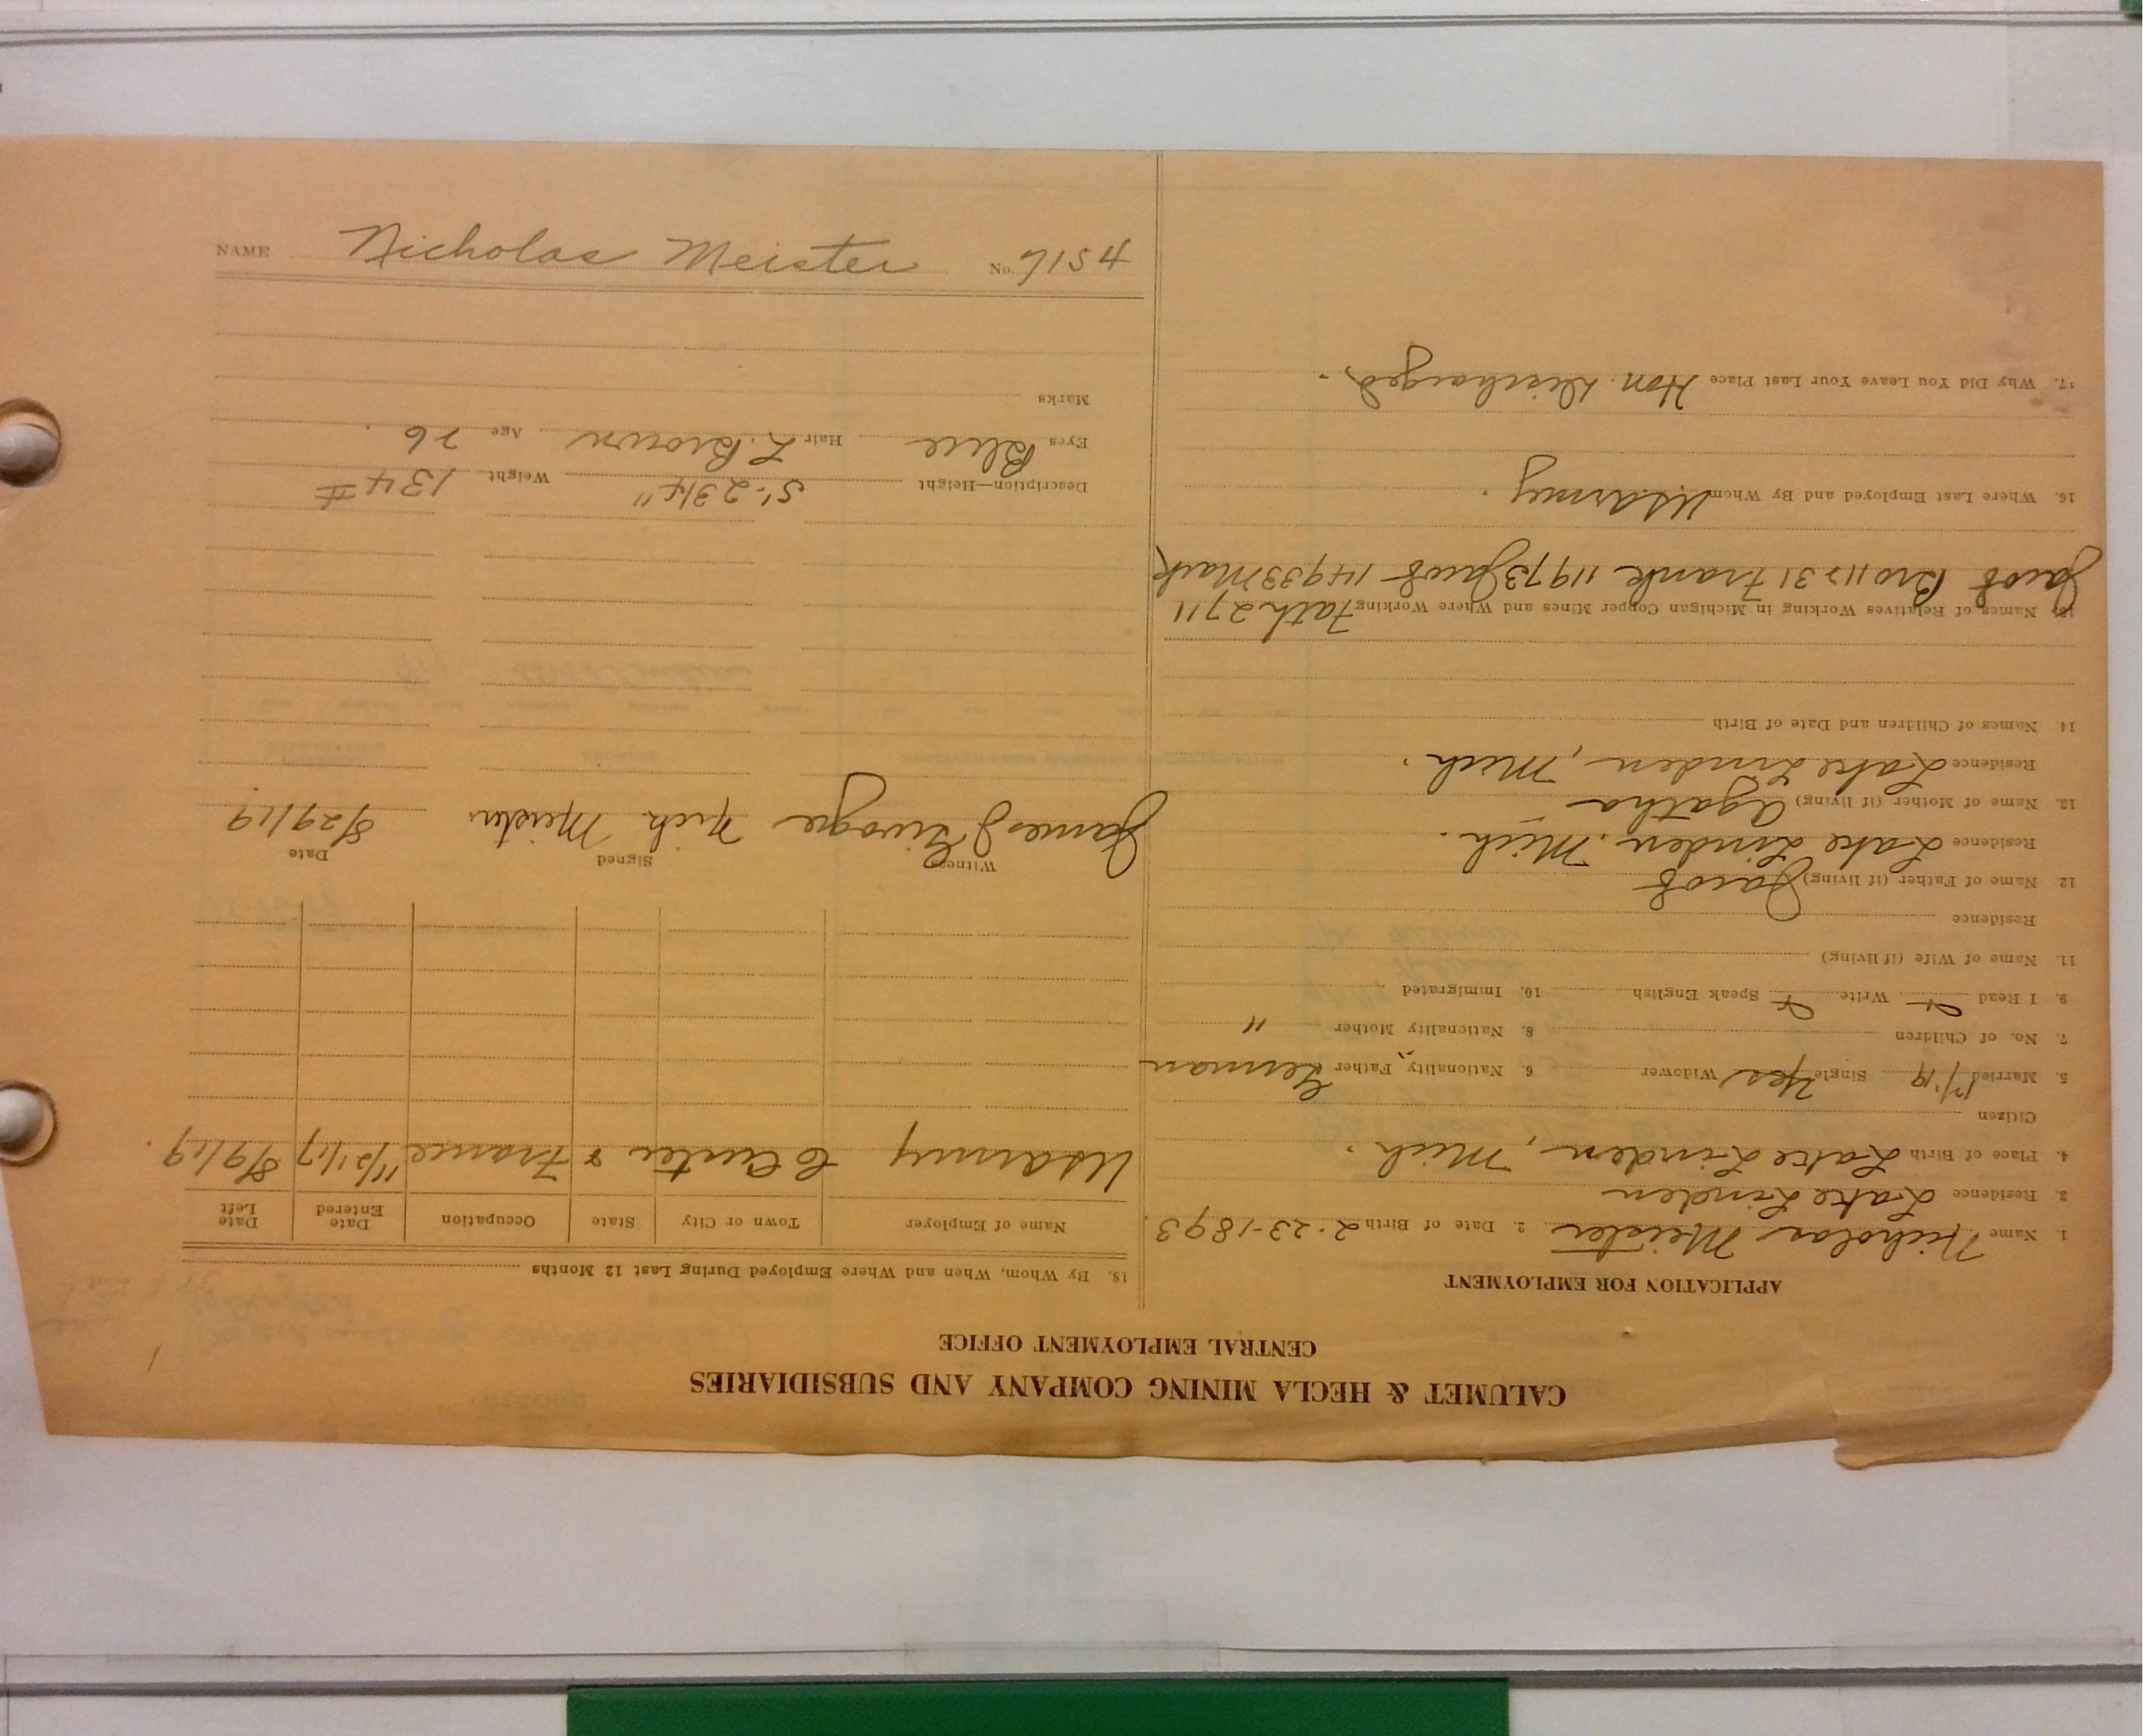 CALUMET & HECLA MINING COMPANY AND SUBSIDIARIES
CENTRAL EMPLOYMENT OFFICE
APPLICATION FOR EMPLOYMENT
1. Name Nicholas Meister 2. Date of Birth 2-23-1893.
3. Residence Lake Linden
4. Place of Birth Lake Linden, Mich.
Citizen
5. Married Single Yes Widower 6. Nationality, Father German
7. No. of Children 8. Nationality Mother "
9. I Read Write Speak English 10. Immigrated
11. Name of Wife (if living)
Residence
12. Name of Father (if living) Jacob
Residence Lake Linden, Mich.
13. Name of Mother (if living) Agatha
Residence Lake Linden, Mich.
14. Names of Children and Date of Birth
15. Names of Relatives Working in Michigan Copper Mines and Where Working Fath 2711
Jacob Bro 11231 Frank 11973 Jacob 14933 Mark
16. Where Last Employed and By Whom US army.
17. Why Did You Leave Your Last Place Hon. Discharged.
18. By Whom, When and Where Employed During Last 12 Months
Name of Employer Town or City State Occupation Date Entered Date Left
US army Custer & France 11/21/17 8/9/19.
Witness Signed Date
James J Nich Meister 8/29/19
Description—Height 5'-2 3/4" Weight 134 #
Eyes Blue Hair L. Brown Age 26.
Marks
NAME Nicholas Meister No. 7154